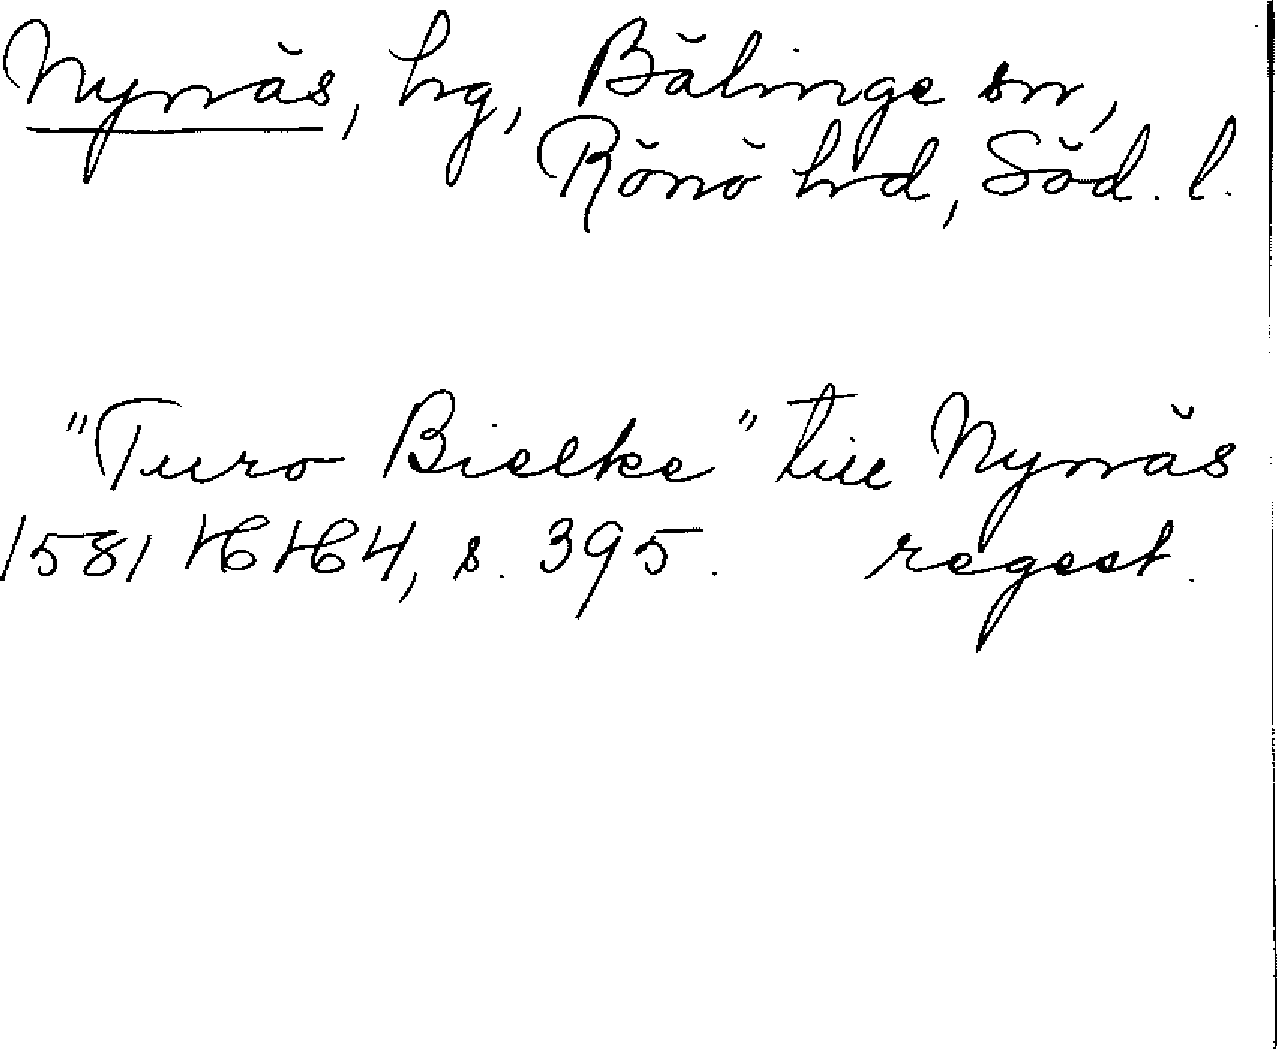 Nynäs, hg, Bälinge sn,
Rönö hd, Söd. l.
"Turo Bielke" till Nynäs
1581 HCHC4, s. 395. regest.